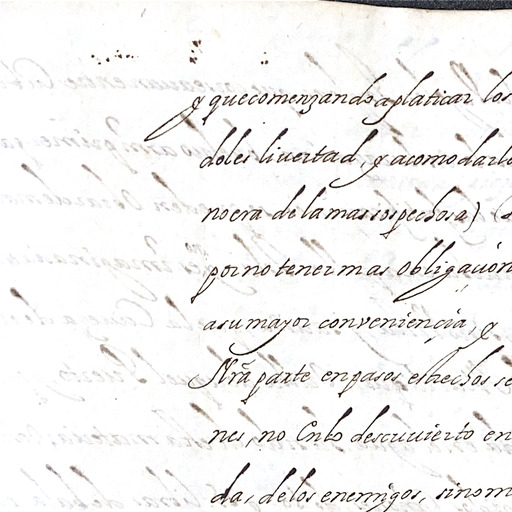 y que comenzando a platicar los
doles liuertad, y acomodarlo
no era de la mas sospechosa)
por no tener mas obligaçion
a su mayor conveniençia, y
Nrã parte en pasos estrechos se
nes, no enlo descuuierto en
da, de los enemigos, sinom